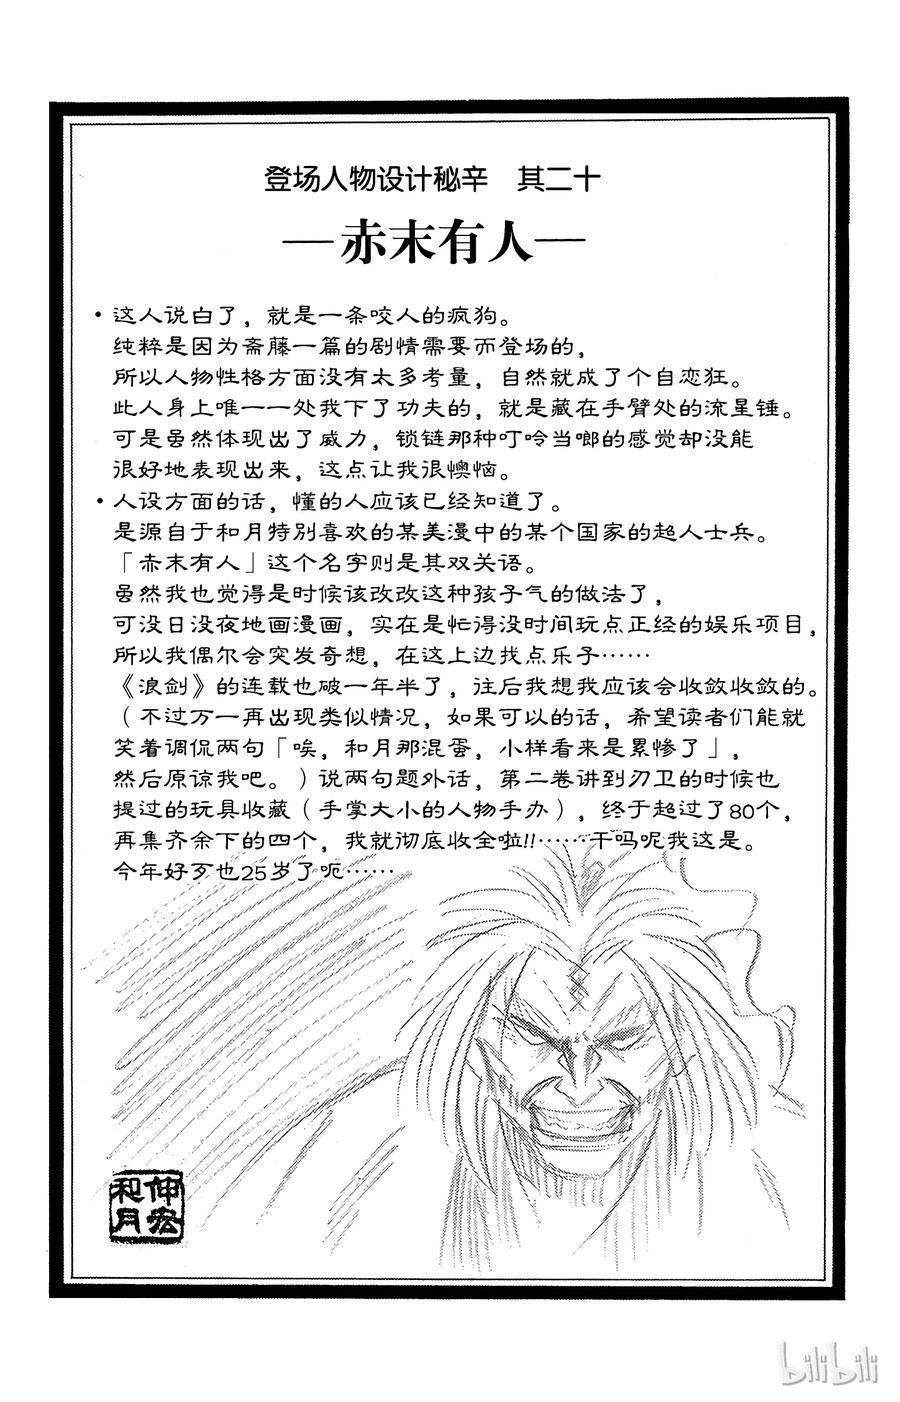 登场人物设计秘辛　其二十
—赤末有人—
・这人说白了，就是一条咬人的疯狗。
纯粹是因为斋藤一篇的剧情需要而登场的，
所以人物性格方面没有太多考量，自然就成了个自恋狂。
此人身上唯一一处我下了功夫的，就是藏在手臂处的流星锤。
可是虽然体现出了威力，锁链那种叮呤当啷的感觉却没能
很好地表现出来，这点让我很懊恼。
・人设方面的话，懂的人应该已经知道了。
是源自于和月特别喜欢的某美漫中的某个国家的超人士兵。
「赤末有人」这个名字则是其双关语。
虽然我也觉得是时候该改改这种孩子气的做法了，
可没日没夜地画漫画，实在是忙得没时间玩点正经的娱乐项目，
所以我偶尔会突发奇想，在这上边找点乐子……
《浪剑》的连载也破一年半了，往后我想我应该会收敛收敛的。
（不过万一再出现类似情况，如果可以的话，希望读者们能就
笑着调侃两句「唉，和月那混蛋，小样看来是累惨了」，
然后原谅我吧。）说两句题外话，第二卷讲到刃卫的时候也
提过的玩具收藏（手掌大小的人物手办），终于超过了80个，
再集齐余下的四个，我就彻底收全啦!!……干吗呢我这是。
今年好歹也25岁了呃……
伸宏
和月
bilibili